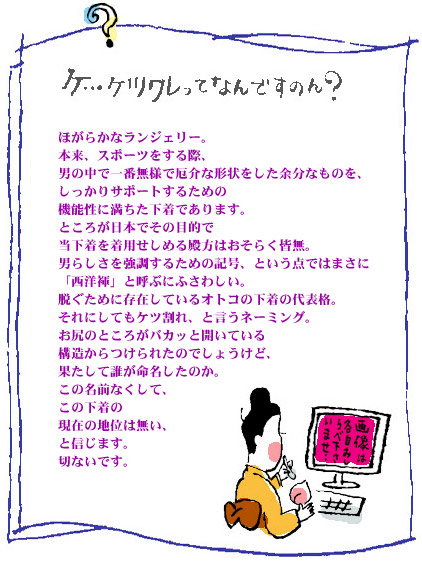 ?
ケ…ケツワレってなんですのん?
ほがらかなランジェリー。
本来、スポーツをする際、
男の中で一番無様で厄介な形状をした余分なものを、
しっかりサポートするための
機能性に満ちた下着であります。
ところが日本でその目的で
当下着を着用せしめる殿方はおそらく皆無。
男らしさを強調するための記号、という点ではまさに
「西洋褌」と呼ぶにふさわしい。
脱ぐために存在しているオトコの下着の代表格。
それにしてもケツ割れ、と言うネーミング。
お尻のところがバカッと開いている
構造からつけられたのでしょうけど、
果たして誰が命名したのか。
この名前なくして、
この下着の
現在の地位は無い、
と信じます。
切ないです。
画像は
各自お
しらべ下さ
いませ。